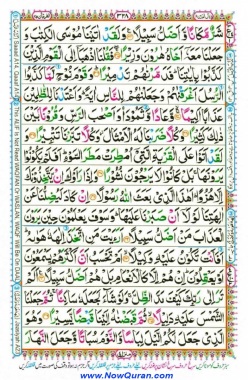 ٣٢٨
شَرٌّ مَّكَانًا وَّاَضَلُّ سَبِيْلًا وَلَقَدْ اٰتَيْنَا مُوْسَى الْكِتٰبَ وَ
جَعَلْنَا مَعَهٗۤ اَخَاهُ هٰرُوْنَ وَزِيْرًا فَقُلْنَا اذْهَبَاۤ اِلَى الْقَوْمِ الَّذِيْنَ
كَذَّبُوْا بِاٰيٰتِنَا فَدَمَّرْنٰهُمْ تَدْمِيْرًا وَقَوْمَ نُوْحٍ لَّمَّا كَذَّبُوا
الرُّسُلَ اَغْرَقْنٰهُمْ وَجَعَلْنٰهُمْ لِلنَّاسِ اٰيَةً وَاَعْتَدْنَا لِلظّٰلِمِيْنَ
عَذَابًا اَلِيْمًا وَّعَادًا وَّثَمُوْدَا۟ وَاَصْحٰبَ الرَّسِّ وَقُرُوْنًۢا بَيْنَ
ذٰلِكَ كَثِيْرًا وَكُلًّا ضَرَبْنَا لَهُ الْاَمْثَالَ وَكُلًّا تَبَّرْنَا تَتْبِيْرًا
وَلَقَدْ اَتَوْا عَلَى الْقَرْيَةِ الَّتِيْۤ اُمْطِرَتْ مَطَرَ السَّوْءِ اَفَلَمْ يَكُوْنُوْا
يَرَوْنَهَا بَلْ كَانُوْا لَا يَرْجُوْنَ نُشُوْرًا وَاِذَا رَاَوْكَ اِنْ يَّتَّخِذُوْنَكَ
اِلَّا هُزُوًا اَهٰذَا الَّذِيْ بَعَثَ اللّٰهُ رَسُوْلًا اِنْ كَادَ لَيُضِلُّنَا عَنْ
اٰلِهَتِنَا لَوْلَاۤ اَنْ صَبَرْنَا عَلَيْهَا وَسَوْفَ يَعْلَمُوْنَ حِيْنَ يَرَوْنَ
الْعَذَابَ مَنْ اَضَلُّ سَبِيْلًا اَرَءَيْتَ مَنِ اتَّخَذَ اِلٰهَهٗ هَوٰىهُ
اَفَاَنْتَ تَكُوْنُ عَلَيْهِ وَكِيْلًا اَمْ تَحْسَبُ اَنَّ اَكْثَرَهُمْ يَسْمَعُوْنَ
اَوْ يَعْقِلُوْنَ اِنْ هُمْ اِلَّا كَالْاَنْعَامِ بَلْ هُمْ اَضَلُّ سَبِيْلًا
اَلَمْ تَرَ اِلٰى رَبِّكَ كَيْفَ مَدَّ الظِّلَّ وَلَوْ شَآءَ لَجَعَلَهٗ سَاكِنًا ثُمَّ جَعَلْنَا
الشَّمْسَ عَلَيْهِ دَلِيْلًا ثُمَّ قَبَضْنٰهُ اِلَيْنَا قَبْضًا يَّسِيْرًا وَهُوَ
الَّذِيْ جَعَلَ لَكُمُ الَّيْلَ لِبَاسًا وَّالنَّوْمَ سُبَاتًا وَّجَعَلَ النَّهَارَ
www.NowQuran.com